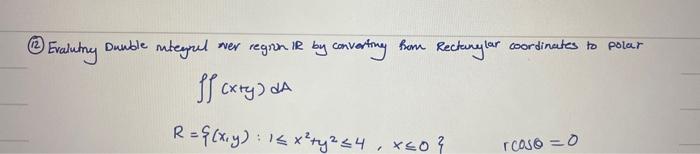 ⑫ Evalutny Duuble ntegrul over region IR by converting from Rectanglar coordinates to polar
∬ (x+y) dA
R = {(x,y) : 1≤ x²+y² ≤4 , x≤0} rcosθ = 0